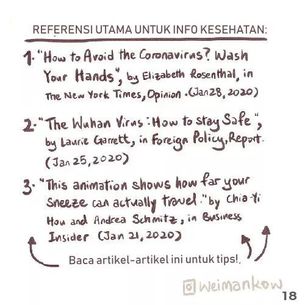 REFERENSI UTAMA UNTUK INFO KESEHATAN:
1. "How to Avoid the Coronavirus? Wash
Your Hands", by Elizabeth Rosenthal, in
The New York Times, Opinion. (Jan 28, 2020)
2. "The Wuhan Virus: How to Stay Safe",
by Laurie Garrett, in Foreign Policy, Report.
(Jan 25, 2020)
3. "This animation shows how far your
Sneeze can actually travel." by Chia-Yi
Hou and Andrea Schmitz, in Business
Insider (Jan 21, 2020)
Baca artikel-artikel ini untuk tips!
@weimankow
18